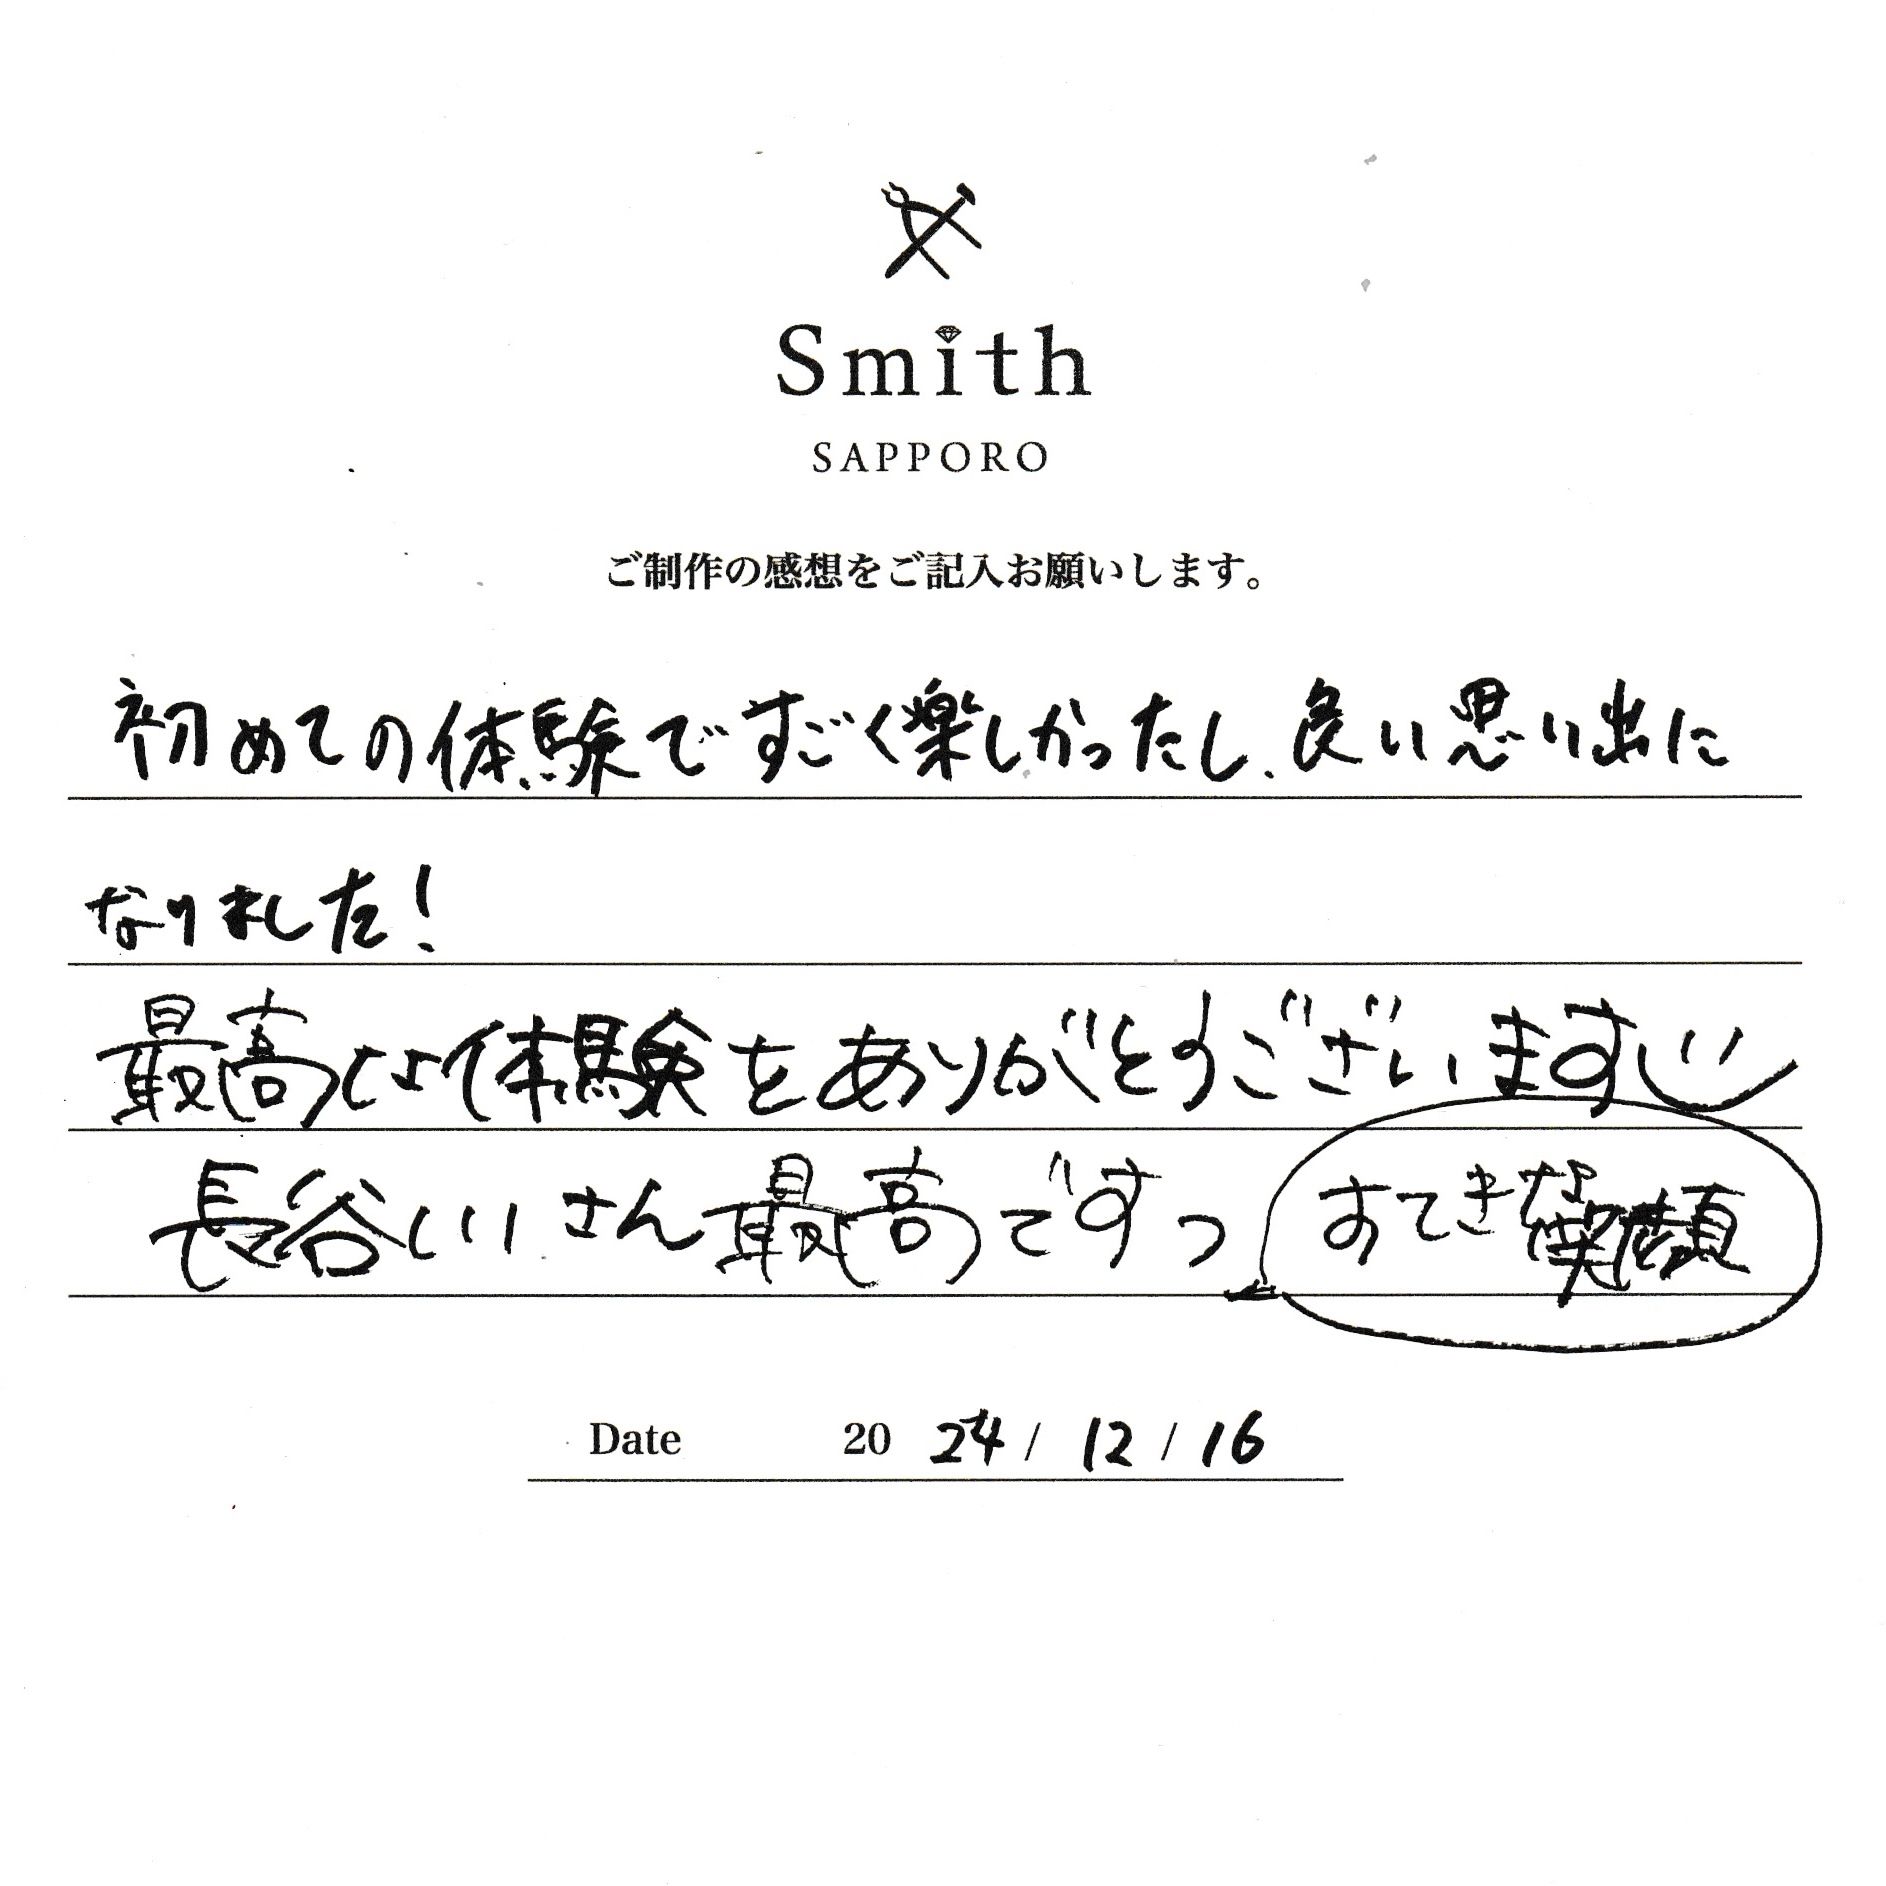 Smith
SAPPORO
ご制作の感想をご記入お願いします。
初めての体験ですごく楽しかったし、良い思い出に
なりました!
最高な体験をありがとうございます
長谷川さん最高ですっ
すてきな笑顔
Date 2024/12/16